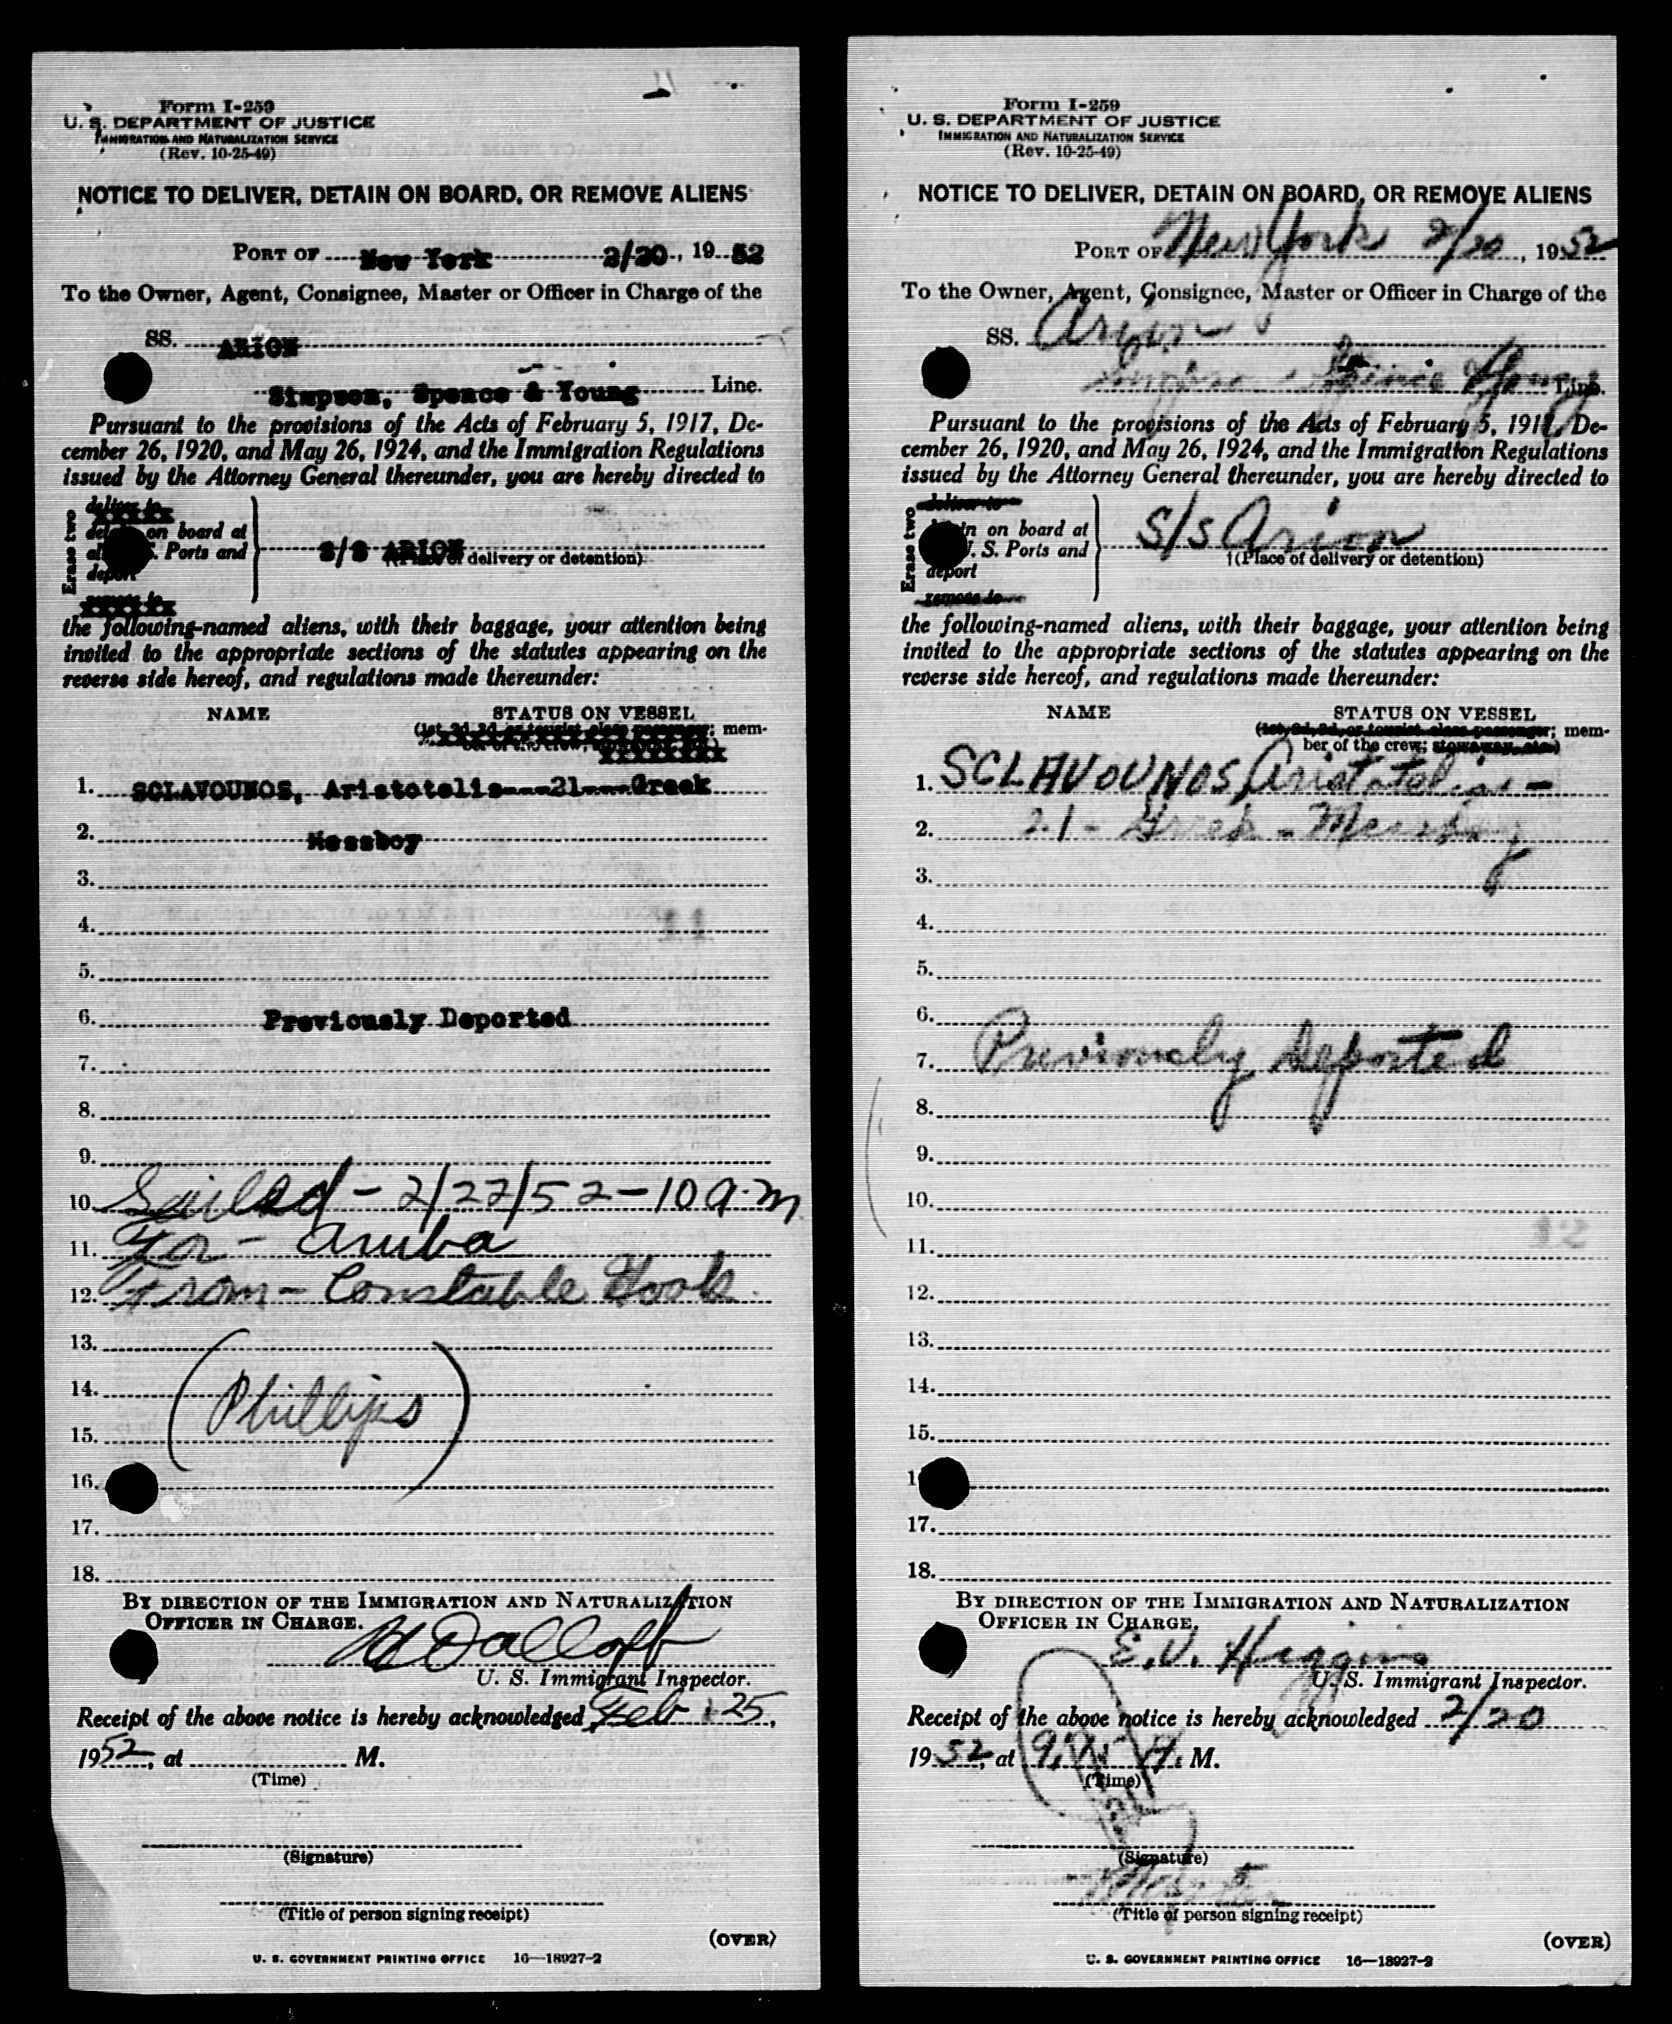 Form I-259
U. S. DEPARTMENT OF JUSTICE
IMMIGRATION AND NATURALIZATION SERVICE
(Rev. 10-25-49)
NOTICE TO DELIVER, DETAIN ON BOARD, OR REMOVE ALIENS
PORT OF New York 2/20, 1952
To the Owner, Agent, Consignee, Master or Officer in Charge of the
SS. ARION
Simpson, Spence & Young Line.
Pursuant to the provisions of the Acts of February 5, 1917, De-
cember 26, 1920, and May 26, 1924, and the Immigration Regulations
issued by the Attorney General thereunder, you are hereby directed to
Erase two
deliver to
on board at
S. Ports and
S/S ARION
(Place of delivery or detention)
deport
remove to
the following-named aliens, with their baggage, your attention being
invited to the appropriate sections of the statutes appearing on the
reverse side hereof, and regulations made thereunder:
NAME STATUS ON VESSEL
(1st, 2d, 3d, or tourist class passenger; mem-
ber of the crew;
1. SCLAVOUNOS, Aristotelis---21---Greek
2. Messboy
3.
4. 11
5.
6. Previously Deported
7.
8.
9.
10. Sailed - 2/22/52 - 10 a.m
11. For - Aruba
12. From - Constable Hook
13.
14. (Phillips)
15.
16.
17.
18.
BY DIRECTION OF THE IMMIGRATION AND NATURALIZATION
OFFICER IN CHARGE.
U. S. Immigrant Inspector.
Receipt of the above notice is hereby acknowledged Feb 25,
1952, at M.
(Time)
(Signature)
(Title of person signing receipt)
(OVER)
U. S. GOVERNMENT PRINTING OFFICE 16—18927-2
Form I-259
U. S. DEPARTMENT OF JUSTICE
IMMIGRATION AND NATURALIZATION SERVICE
(Rev. 10-25-49)
NOTICE TO DELIVER, DETAIN ON BOARD, OR REMOVE ALIENS
PORT OF New York 2/20, 1952
To the Owner, Agent, Consignee, Master or Officer in Charge of the
SS. Arion
Simpson Spence & Young Line.
Pursuant to the provisions of the Acts of February 5, 1917, De-
cember 26, 1920, and May 26, 1924, and the Immigration Regulations
issued by the Attorney General thereunder, you are hereby directed to
Erase two
deliver to
on board at
U. S. Ports and
S/S Arion
(Place of delivery or detention)
deport
remove to
the following-named aliens, with their baggage, your attention being
invited to the appropriate sections of the statutes appearing on the
reverse side hereof, and regulations made thereunder:
NAME STATUS ON VESSEL
(1st, 2d, 3d, or tourist class passenger; mem-
ber of the crew; stowaway, etc.)
1. SCLAVOUNOS, Aristotelis -
2. 21 - Greek - Messboy
3.
4.
5.
6.
7. Previously Deported
8.
9.
10.
11. 12
12.
13.
14.
15.
17.
18.
BY DIRECTION OF THE IMMIGRATION AND NATURALIZATION
OFFICER IN CHARGE.
E. V. Higgins
U. S. Immigrant Inspector.
Receipt of the above notice is hereby acknowledged 2/20
1952, at A. M.
(Time)
(Signature)
Master
(Title of person signing receipt)
(OVER)
U. S. GOVERNMENT PRINTING OFFICE 16—18927-2